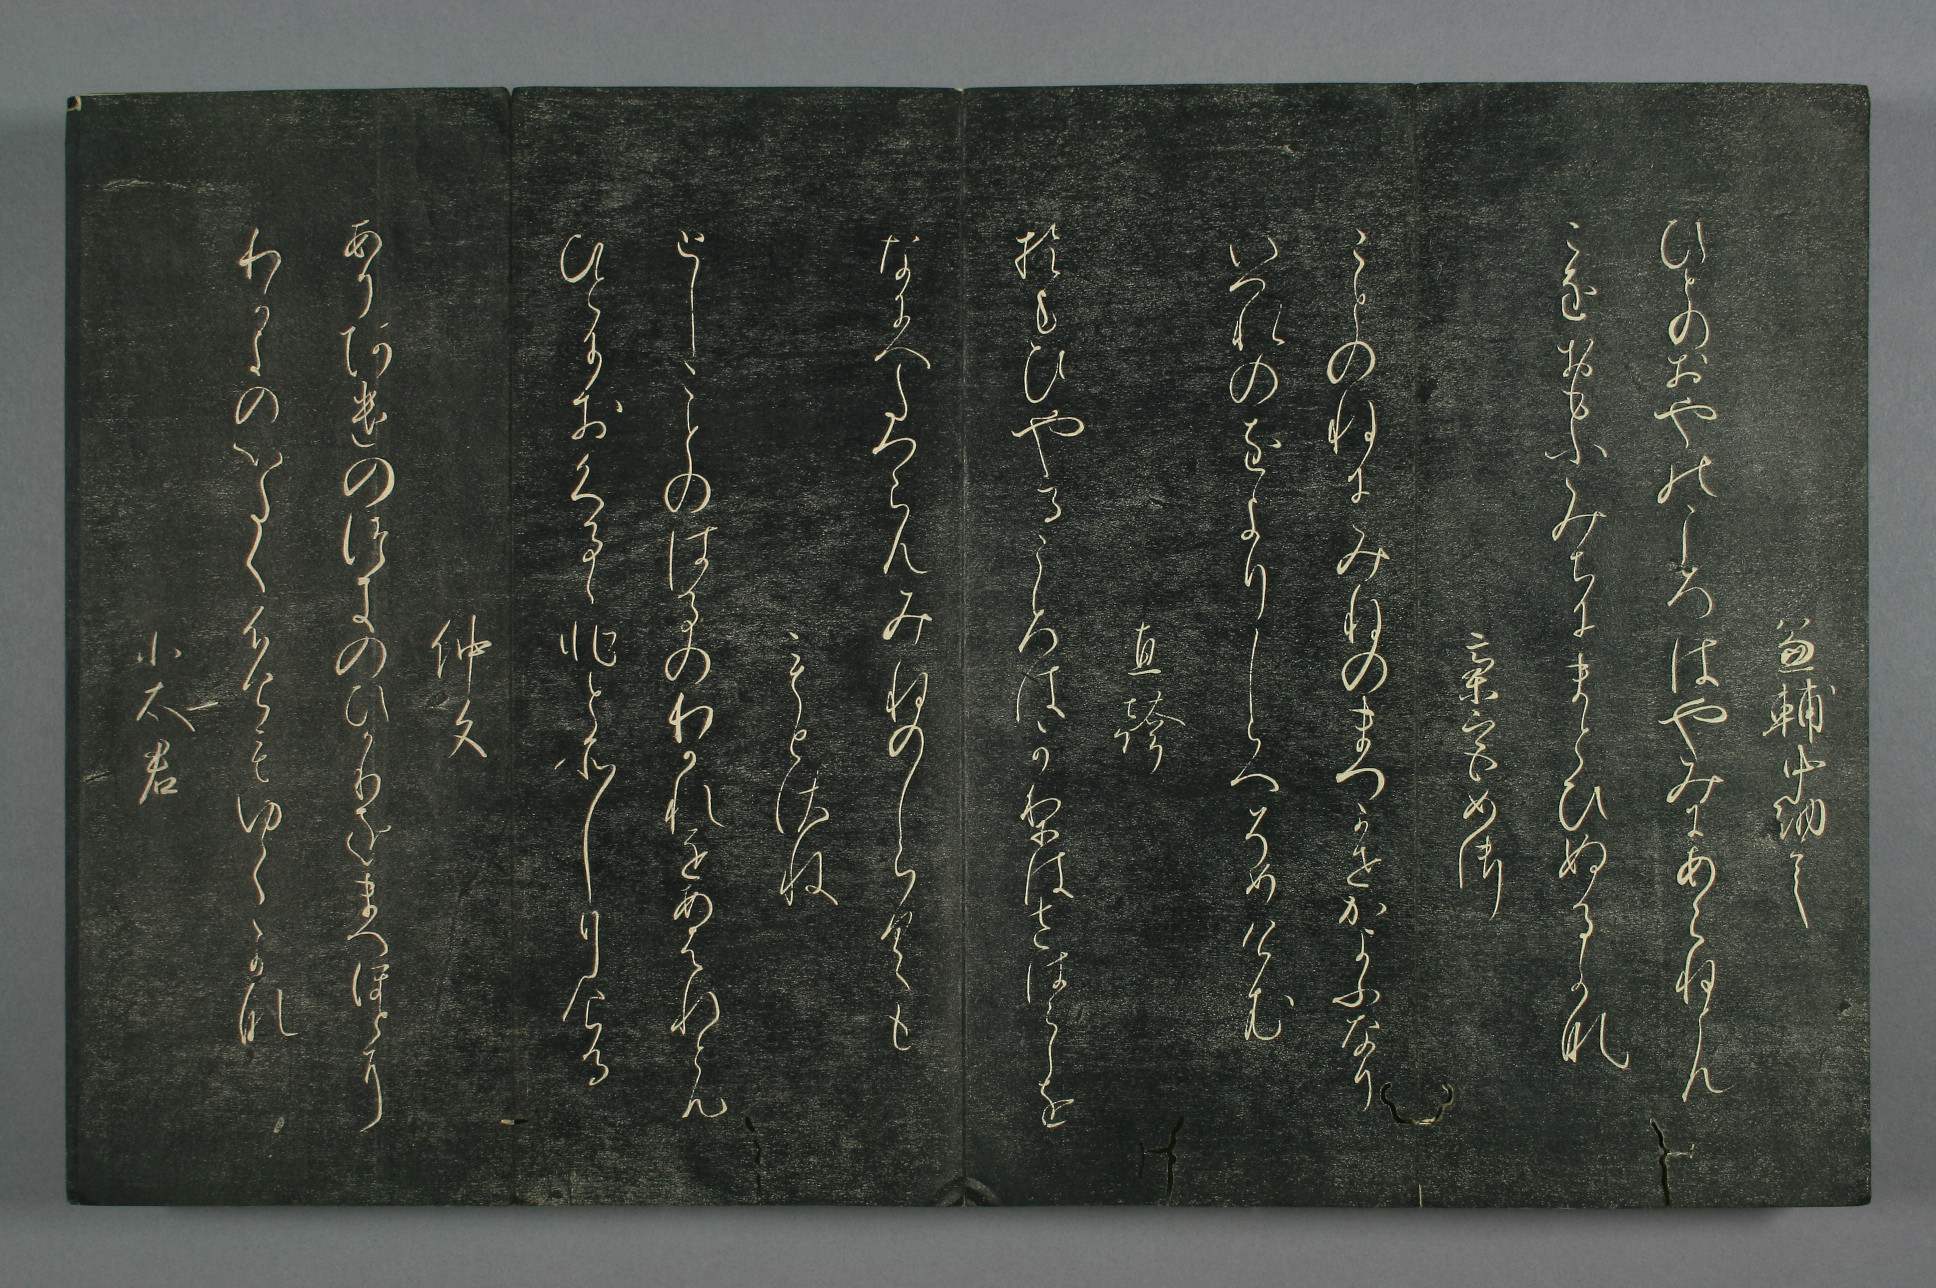 兼輔中納言
ひとのおやのこゝろはやみにあらねとん
こをおもふみちにまとひぬるかな
斎宮女御
ことのねにみねのまつかせかよふなり
いつれのをよりしらへそめけむ
直幹
おもひやるこゝろはかりはさはらしを
なにへたつらんみねのしらくも
もとさね
としことのはるのわかれをあはれとん
ひとにおくるゝひとそしりける
仲文
ありあけのつきのひかりをまつほとに
わかよのいたくふけにけるかな
小大君